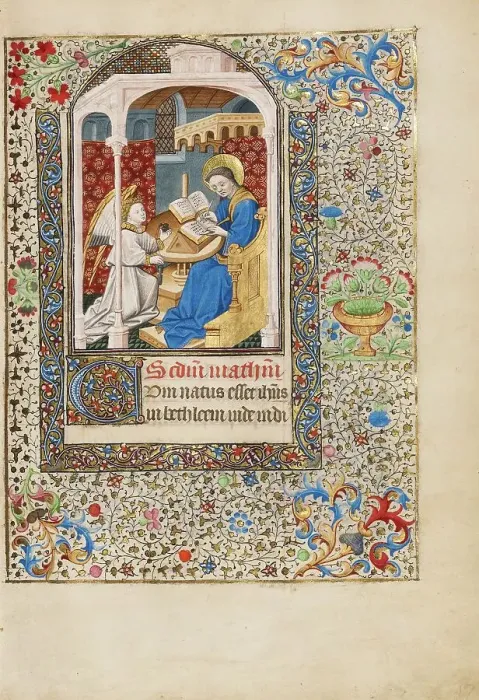 Scdm̄ mathm̄
CVm natus esset ihūs
in bethleem iude in di